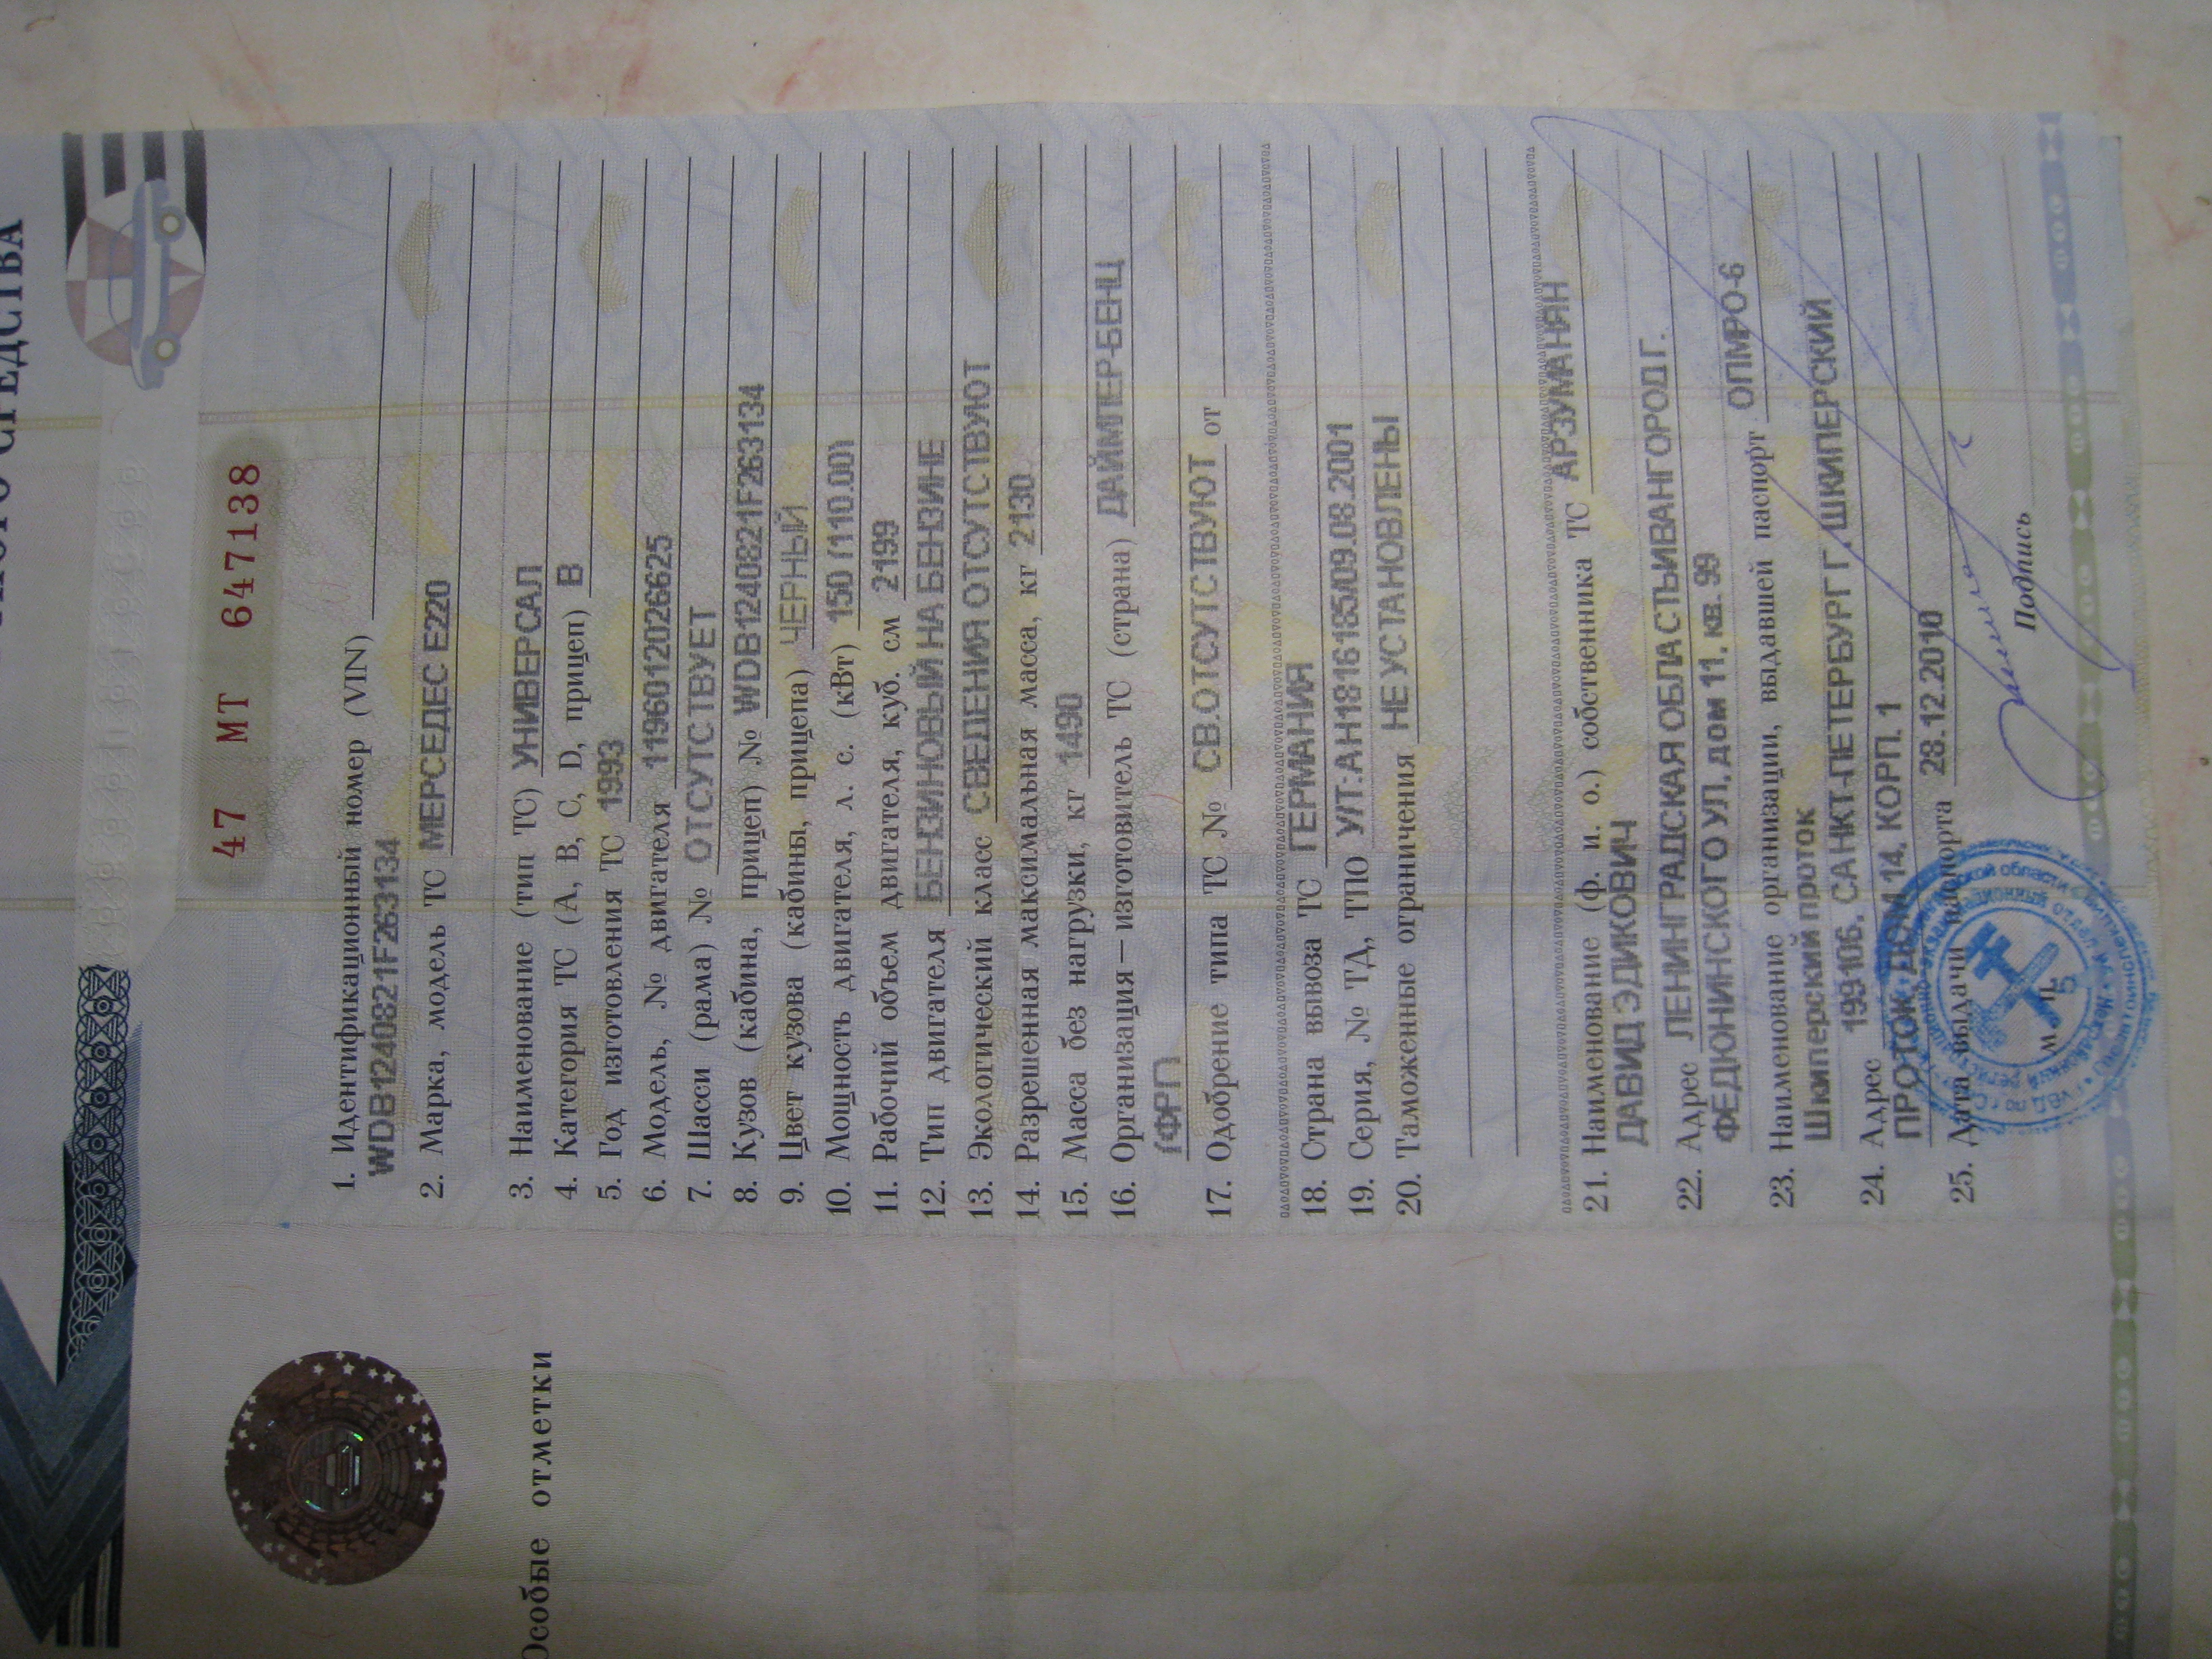 47 МТ 647138
1. Идентификационный номер (VIN)
WDB1240821F263134
2. Марка, модель ТС МЕРСЕДЕС Е220
3. Наименование (тип ТС) УНИВЕРСАЛ
4. Категория ТС (А, В, С, D, прицеп) В
5. Год изготовления ТС 1993
6. Модель, № двигателя 1196012026625
7. Шасси (рама) № ОТСУТСТВУЕТ
8. Кузов (кабина, прицеп) № WDB1240821F263134
9. Цвет кузова (кабины, прицепа) ЧЕРНЫЙ
10. Мощность двигателя, л. с. (кВт) 150 (110.00)
11. Рабочий объем двигателя, куб. см 2199
12. Тип двигателя БЕНЗИНОВЫЙ НА БЕНЗИНЕ
13. Экологический класс СВЕДЕНИЯ ОТСУТСТВУЮТ
14. Разрешенная максимальная масса, кг 2130
15. Масса без нагрузки, кг 1490
16. Организация—изготовитель ТС (страна) ДАЙМЛЕР-БЕНЦ
(ФРГ)
17. Одобрение типа ТС № СВ.ОТСУТСТВУЮТ от
18. Страна вывоза ТС ГЕРМАНИЯ
19. Серия, № ТД, ТПО УИТ:АН1816185/09.08.2001
20. Таможенные ограничения НЕ УСТАНОВЛЕНЫ
21. Наименование (ф. и. о.) собственника ТС АРЗУМАНЯН
ДАВИД ЭДИКОВИЧ
22. Адрес ЛЕНИНГРАДСКАЯ ОБЛАСТЬ ИВАНГОРОД Г.
ФЕДЮНИНСКОГО УЛ, дом 11, кв. 99
23. Наименование организации, выдавшей паспорт ОПМРО-6
Шкиперский проток
24. Адрес 199106, САНКТ-ПЕТЕРБУРГ Г. ШКИПЕРСКИЙ
ПРОТОК, ДОМ 14, КОРП. 1
25. Дата выдачи паспорта 28.12.2010
М. П.
5
Подпись
Особые отметки